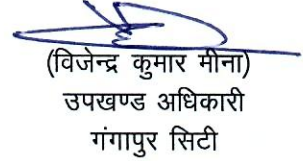 (विजेन्द्र कुमार मीना)
उपखण्ड अधिकारी
गंगापुर सिटी